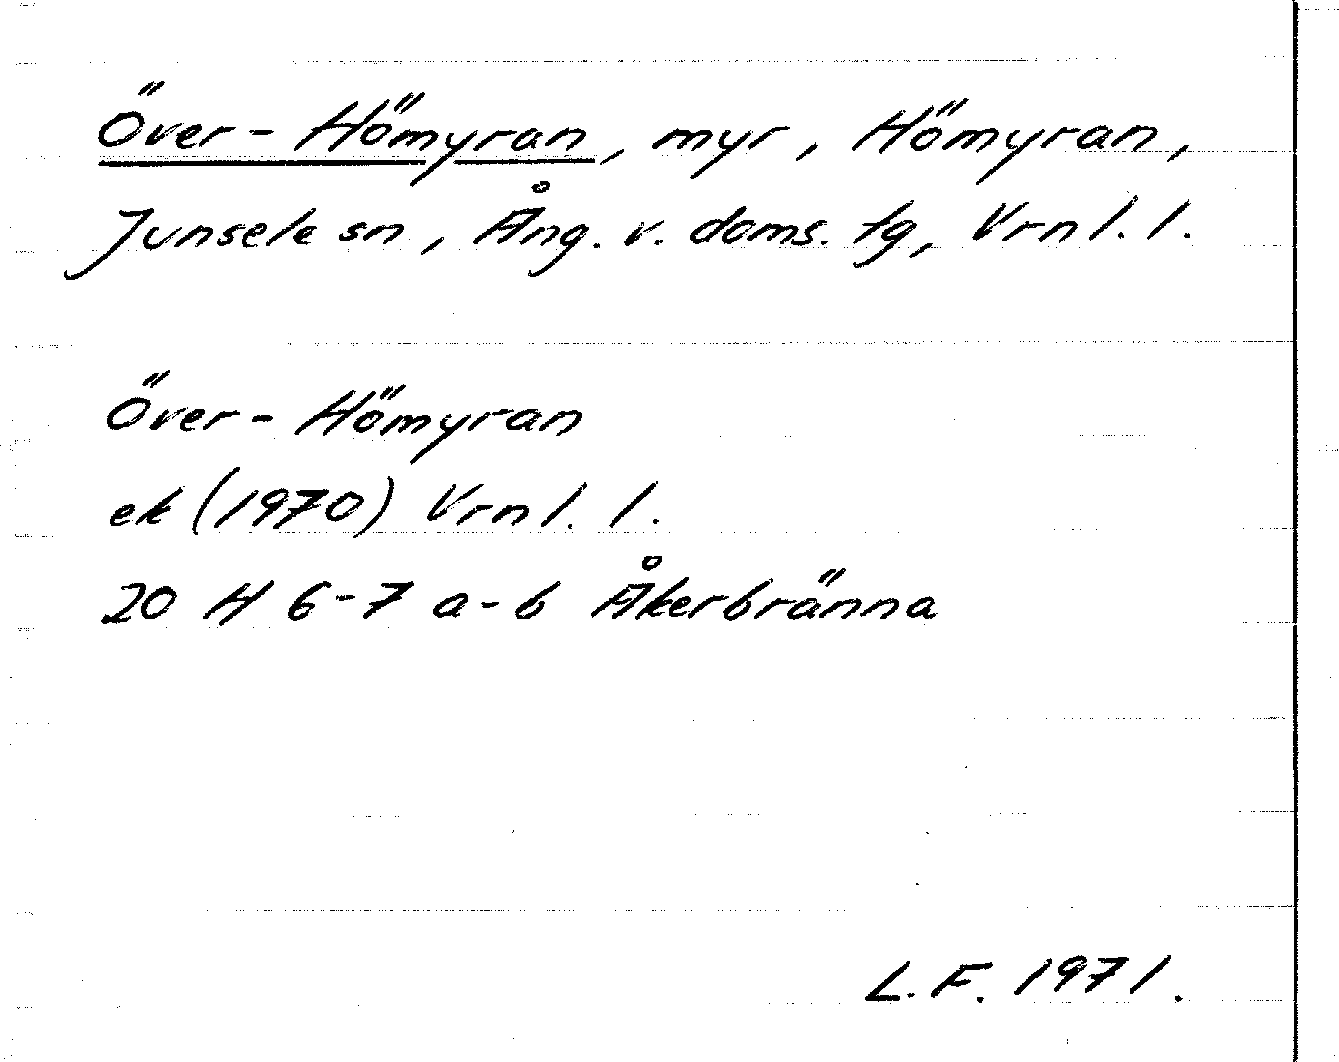 Över-Hömyran, myr, Hömyran,
Junsele sn, Ång. v. doms. tg, Vrnl. l.
Över-Hömyran
ek (1970) Vrnl. l.
20 H 6-7 a-b Åkerbränna
L. F. 1971.